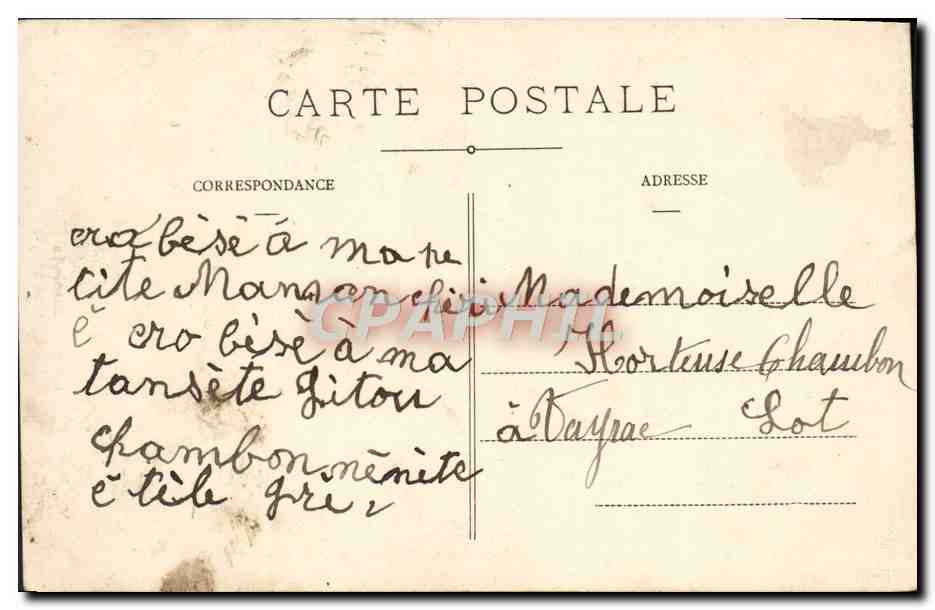 CARTE POSTALE
CORRESPONDANCE
cro bèsè à ma pe
tite Manman chéri
è cro bèsè à ma
tansète Gitou
Chambon nènète
è tèle gré
ADRESSE
Mademoiselle
Hortense Chambon
à Vayrac Lot
CPAPHIL